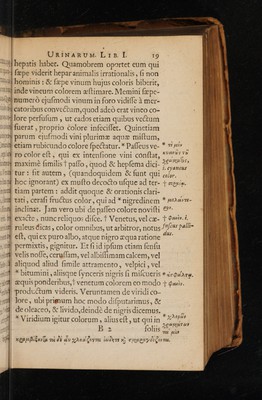 URINARUM. LIB. I. 19
hepatis habet. Quamobrem oportet eum qui
sæpe viderit hepar animalis irrationalis, si non
hominis: & sæpe vinum hujus coloris biberit,
inde vineum colorem æstimare. Memini sæpe-
numerò ejusmodi vinum in foro vidisse à mer-
catoribus convectum, quod adeò erat vino co-
lore perfusum, ut cados etiam quibus vectum
fuerat, proprio colore infecisset. Quinetiam
parum ejusmodi vini plurimæ aquæ mistum,
etiam rubicundo colore spectatur. * Passeus ve-
ro color est, qui ex intensione vini conflua,
maximè similis † passo, quod & hepsema dici-
tur: sit autem, (quandoquidem & sunt qui
hoc ignorant) ex musto decocto usque ad ter-
tiam partem: addit quoque & orationis clari-
tati, cerasi fructus color, qui ad * nigredinem
inclinat. Jam vero ubi de passeo colore novisti
exacte, nunc reliquos disce. † Venetus, vel cæ-
ruleus dicas, color omnibus, ut arbitror, notus
est, qui ex puro albo, atque nigro æqua ratione
permixtis, gignitur. Et si id ipsum etiam sensu
velis nosse, cerussam, vel albissimam calcem, vel
aliquod aliud simile attramento, velpici, vel
* bitumini, aliisque synceris nigris si miscueris
æquis ponderibus, † venetum colorem eo modo
productum videris. Veruntamen de viridi co-
lore, ubi primum hoc modo disputarimus, &
de oleaceo, & livido, deinde de nigris dicemus.
* Viridium igitur colorum, alius est, ut qui in
B 2 foliis
color.